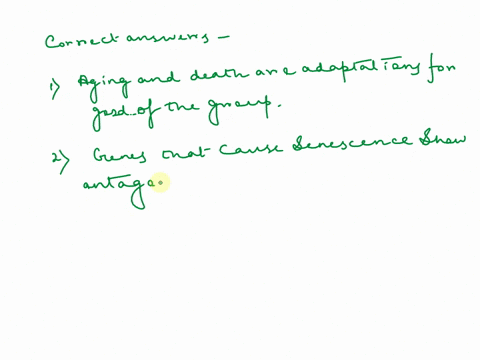 Correct answers -
1) Aging and death are adaptations for
good of the group.
2) Genes that cause Senescence Show
antago